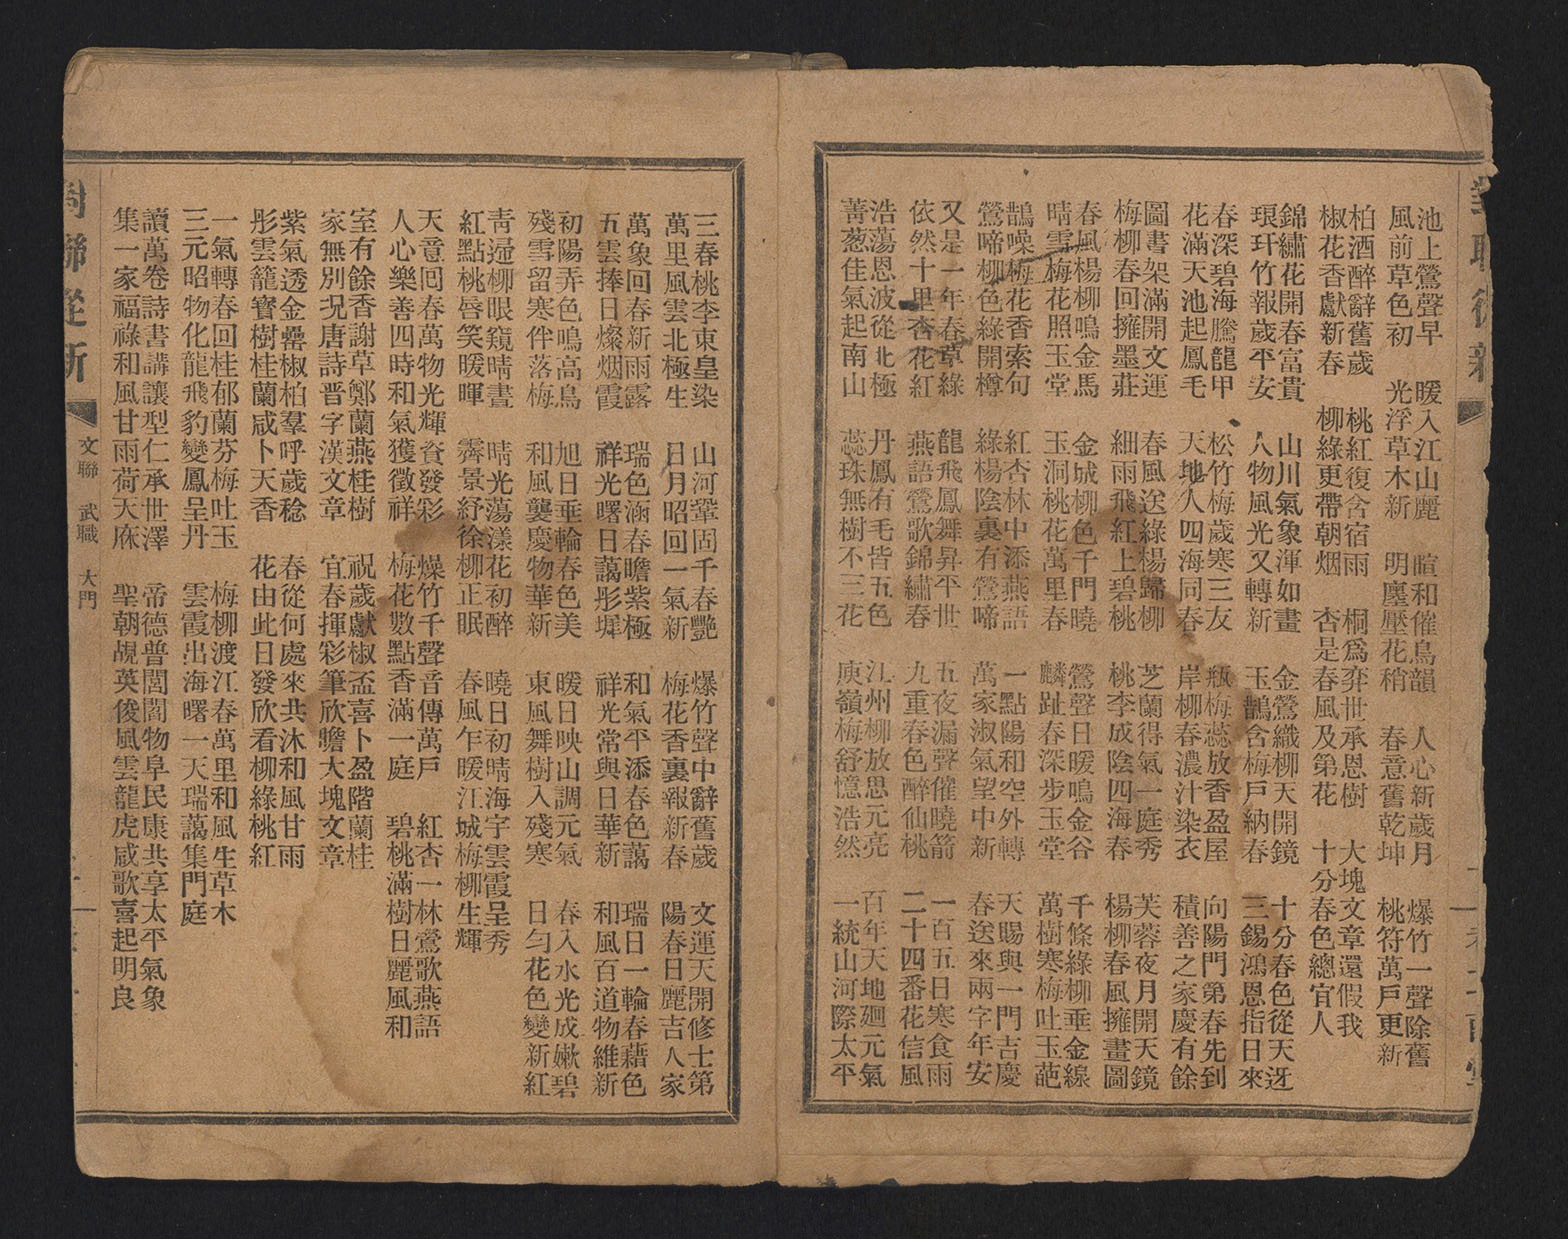 池上鶯聲早　暖入江山麗　暄和催鳥韻　人心新歲月　爆竹一聲除舊
風前草色初　光浮草木新　明壓壓花稍　春意舊乾坤　桃符萬戶更新
柏酒醉辭舊歲　桃紅復含宿雨　桐爲弈世承恩樹　大塊文章還假我
椒花香獻新春　柳綠更帶朝烟　杏是春風及第花　十分春色總宜人
錦繡花開春富貴　山川氣象渾如畫　金鶯織柳天開鏡　十分春色從天迓
琅玕竹報歲平安　人物風光又轉新　玉鵲含梅戶納春　三錫鴻恩指日來
春深碧海騰龍甲　松竹梅歲寒三友　瓶梅蕊放香盈屋　向陽門第春先到
花滿天池起鳳毛　天地人四海同春　岸柳春濃汁染衣　積善之家慶有餘
圖書架滿開文運　春風送綠楊歸柳　芝蘭得氣一庭秀　芙蓉夜月開天鏡
梅柳春回擁墨莊　細雨飛紅上碧桃　桃李成陰四海春　楊柳春風擁畫圖
春風楊柳鳴金馬　金城柳色千門曉　鶯聲日暖鳴金谷　千條綠柳垂金線
晴雪梅花照玉堂　玉洞桃花萬里春　麟趾春深步玉堂　萬樹寒梅吐玉葩
鵲噪梅花香索句　紅杏林中添燕語　一點陽和空外轉　天賜與一門吉慶
鶯啼柳色綠開樽　綠楊陰裏有鶯啼　萬家淑氣望中新　春送來兩字年安
又是一年春草綠　龍飛鳳舞昇平世　五夜漏聲催曉箭　一百五日寒食雨
依然十里杏花紅　燕語鶯歌錦繡春　九重春色醉仙桃　二十四番花信風
浩蕩恩波從北極　丹鳳有毛皆五色　江州柳放思元亮　百年天地廻元氣
菁葱佳氣起南山　蕊珠無樹不三花　庾嶺梅舒憶浩然　一統山河際太平
三春桃李東皇染　山河鞏固千春艷　爆竹聲中辭舊歲　文運天開修士第
萬里風雲北極生　日月昭回一氣新　梅花香裏報新春　陽春日麗吉人家
萬象回春新雨露　瑞色涵春瞻紫極　和氣平添春色藹　瑞日一輪春藹色
五雲捧日燦烟霞　祥光曙日藹彤墀　祥光常與日華新　和風百道物維新
初陽弄色鳴高鳥　旭日垂輪春色美　暖日映山調元氣　春入水光成嫩碧
殘雪留寒伴落梅　和風襲慶物華新　東風舞樹入殘寒　日勻花色變新紅
靑逗柳眼窺晴晝　晴光蕩漾花初醉　曉日初晴海宇雲霞呈秀
紅點桃唇笑暖暉　霽景紓徐柳正眠　春風乍暖江城梅柳生輝
天意回春萬物光輝資發彩　爆竹千聲音傳萬戶　紅杏一林鶯歌燕語
人心樂善四時和氣獲徵祥　梅花數點香滿一庭　碧桃滿樹日麗風和
室有餘香謝草鄭蘭燕桂樹　祝歲獻椒盃喜卜盈階蘭桂
家無別況唐詩晋字漢文章　宜春揮彩筆欣瞻大塊文章
紫氣透金罍椒柏羣呼歲稔　春從何處來共沐和風甘雨
彤雲籠寶樹桂蘭咸卜天香　花由此日發欣看柳綠桃紅
一氣轉春回桂郁蘭芬梅吐玉　梅柳渡江春萬里和風生草木
三元昭物化龍飛豹變鳳呈丹　雲霞出海曙一天瑞藹集門庭
讀萬卷詩書講讓型仁承世澤　帝德普閭閻物阜民康共享太平氣象
集一家福祿和風甘雨荷天庥　聖朝覘英俊風雲龍虎咸歌喜起明良
聯從新　文聯　武職　大門　一